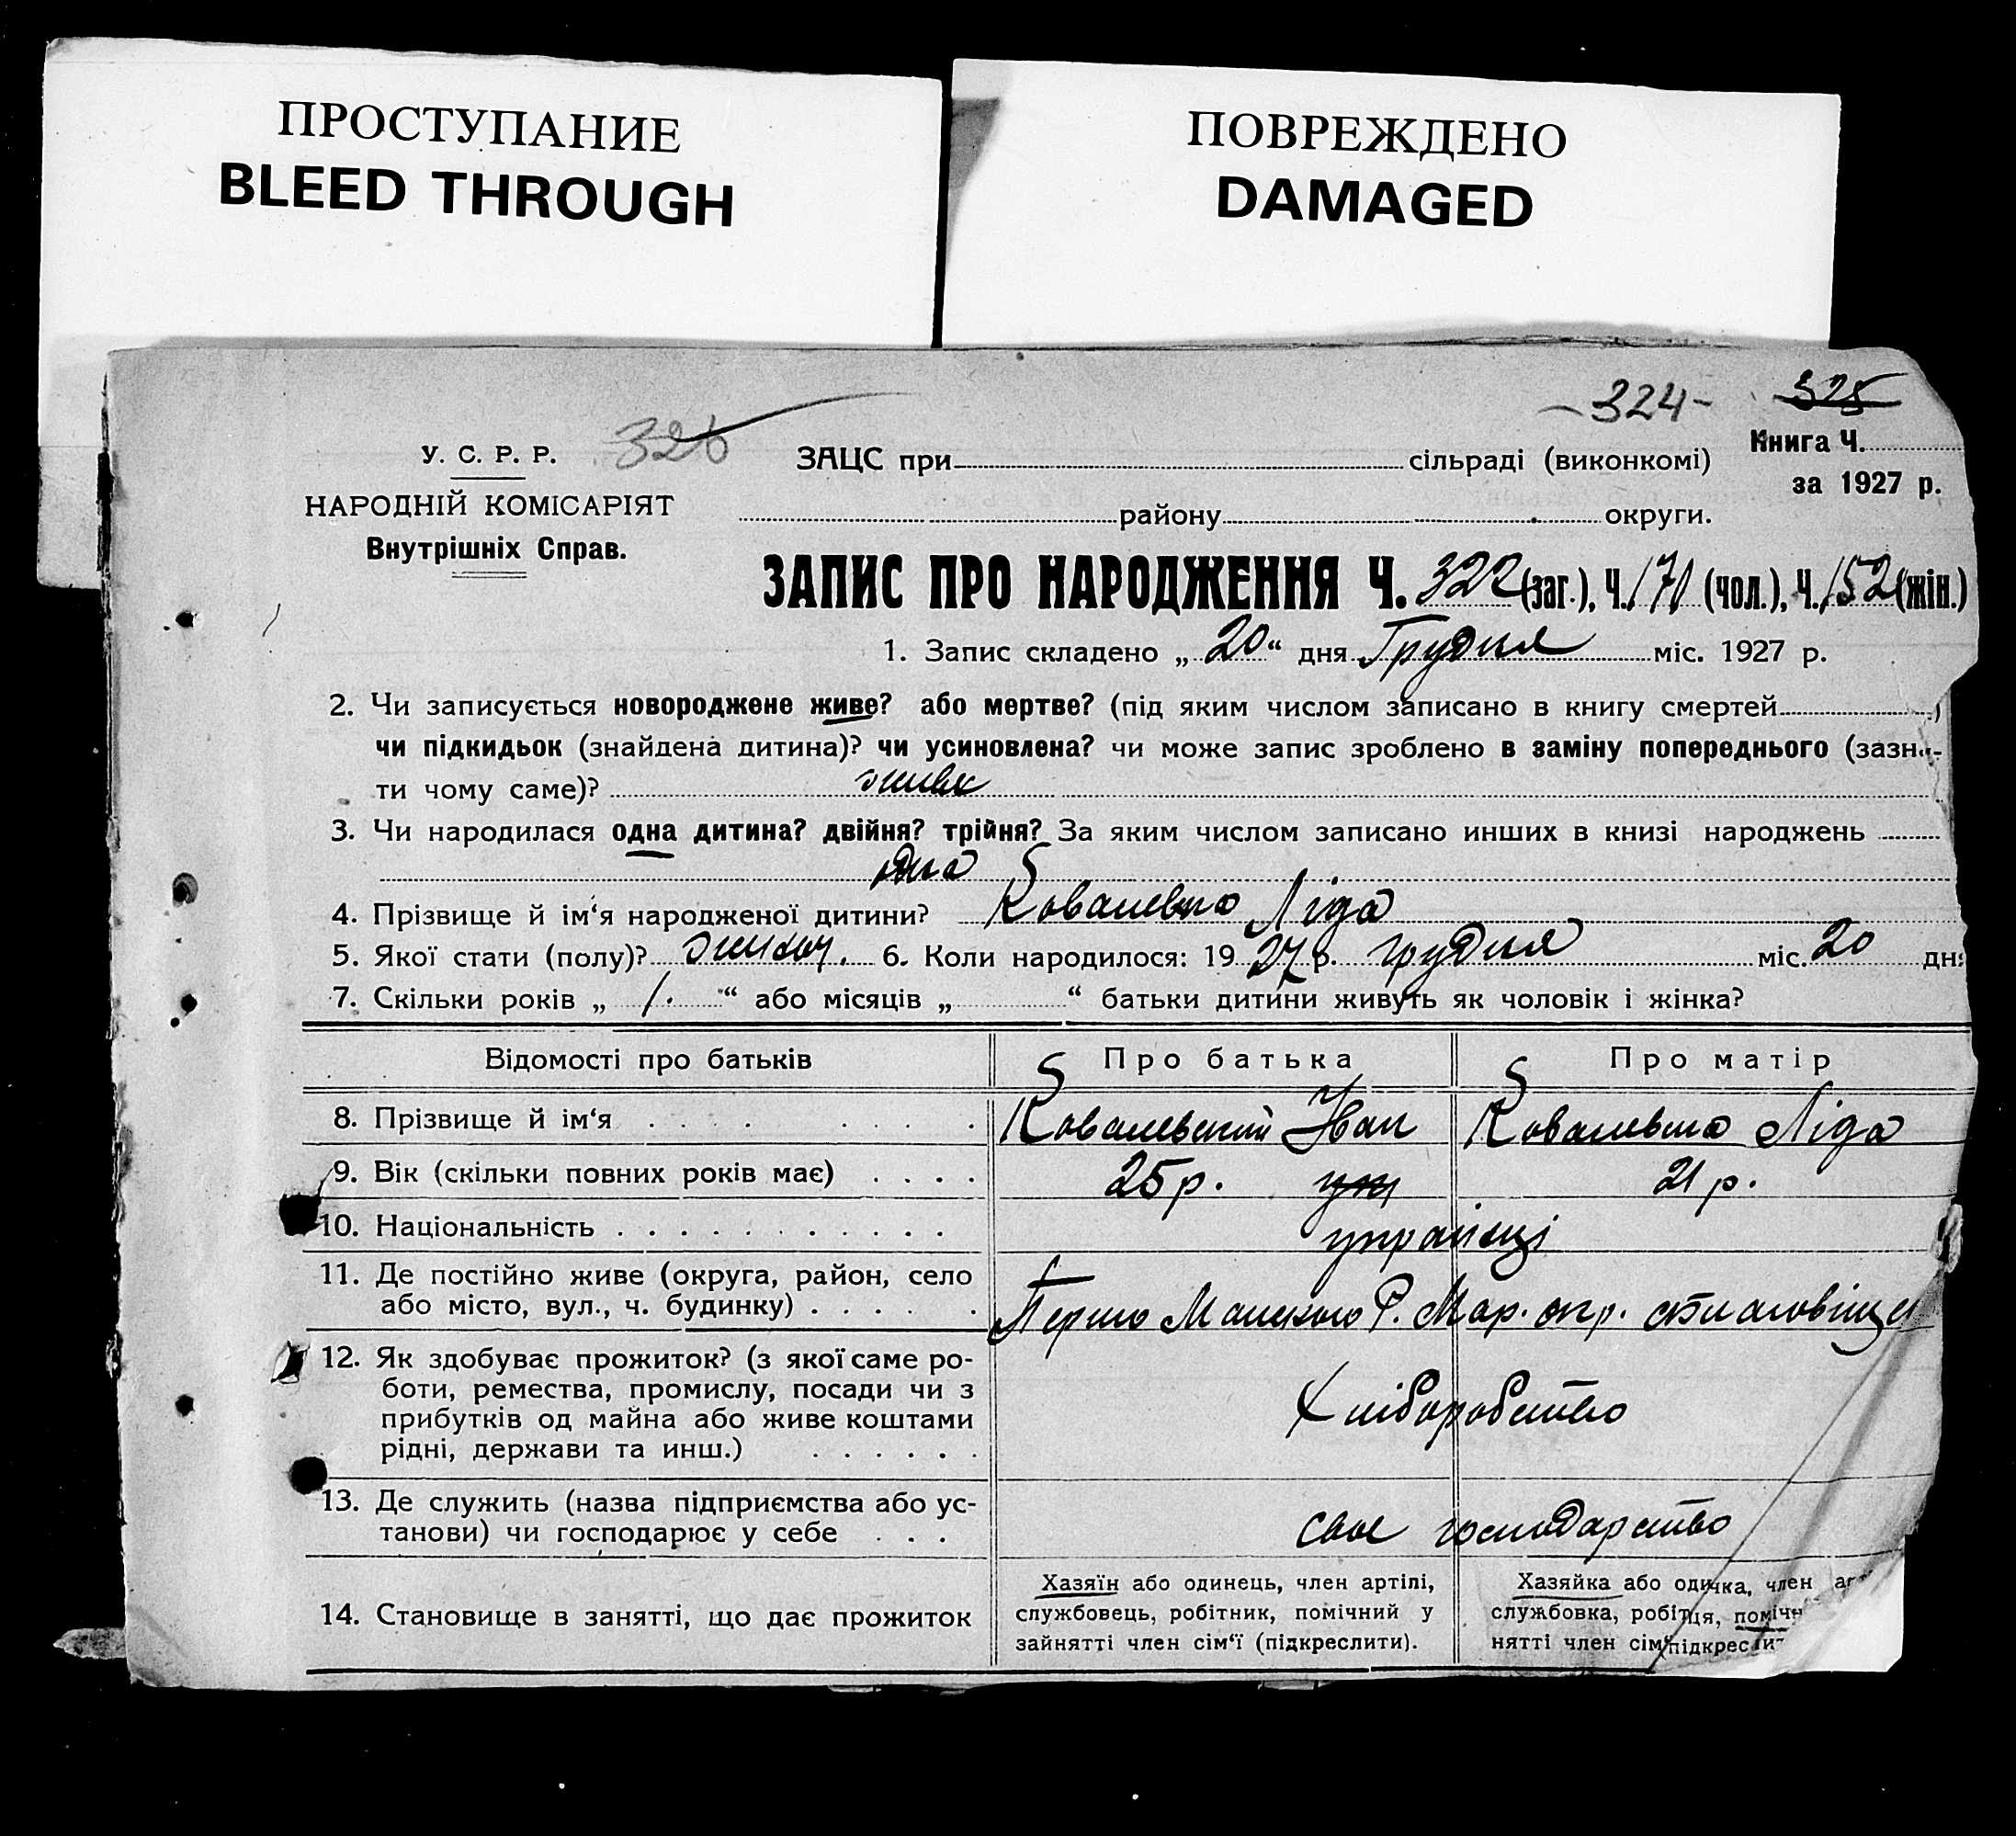 ПРОСТУПАНИЕ
BLEED THROUGH
ПОВРЕЖДЕНО
DAMAGED
-324- 325
У. С. Р. Р. 326 ЗАЦС при сільраді (виконкомі) Книга Ч.
за 1927 р.
НАРОДНІЙ КОМІСАРІЯТ району округи.
Внутрішніх Справ.
ЗАПИС ПРО НАРОДЖЕННЯ Ч. 322 (заг.), Ч. 170 (чол.), Ч. 152 (жін.)
1. Запис складено „ 20 “ дня Грудня міс. 1927 р.
2. Чи записується новороджене живе? або мертве? (під яким числом записано в книгу смертей )
чи підкидьок (знайдена дитина)? чи усиновлена? чи може запис зроблено в заміну попереднього (зазна-
ти чому саме)? живе
3. Чи народилася одна дитина? двійня? трійня? За яким числом записано инших в книзі народжень
одна
4. Прізвище й ім‘я народженої дитини? Ковалевська Ліда
5. Якої стати (полу)? жіноч. 6. Коли народилося: 19 27 р. грудня міс. 20 дня
7. Скільки років „ 1. “ або місяців „ “ батьки дитини живуть як чоловік і жінка?
Відомості про батьків Про батька Про матір
8. Прізвище й ім‘я Ковалевский Іван Ковалевська Ліда
9. Вік (скільки повних років має) 25 р. 21 р.
10. Національність українці
11. Де постійно живе (округа, район, село
або місто, вул., ч. будинку) Мар. окр.
12. Як здобуває прожиток? (з якої саме ро-
боти, ремества, промислу, посади чи з
прибутків од майна або живе коштами
рідні, держави та инш.) Хліборобство
13. Де служить (назва підприємства або ус-
танови) чи господарює у себе своє господарство
14. Становище в занятті, що дає прожиток
Хазяїн або одинець, член артілі,
службовець, робітник, помічний у
зайнятті член сім‘ї (підкреслити).
Хазяйка або одичка, член
службовка, робітця, помічн
нятті член сім підкресли